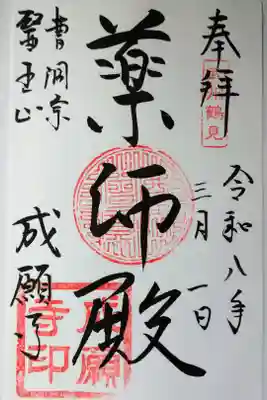 奉拝
鶴見
令和八年
三月一日
薬師殿
曹洞宗
醫王山
成願寺
成願
寺印